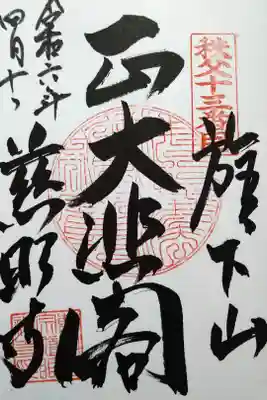 秩父十三番
旗下山
正大悲閣
慈眼寺
令和六年
四月十